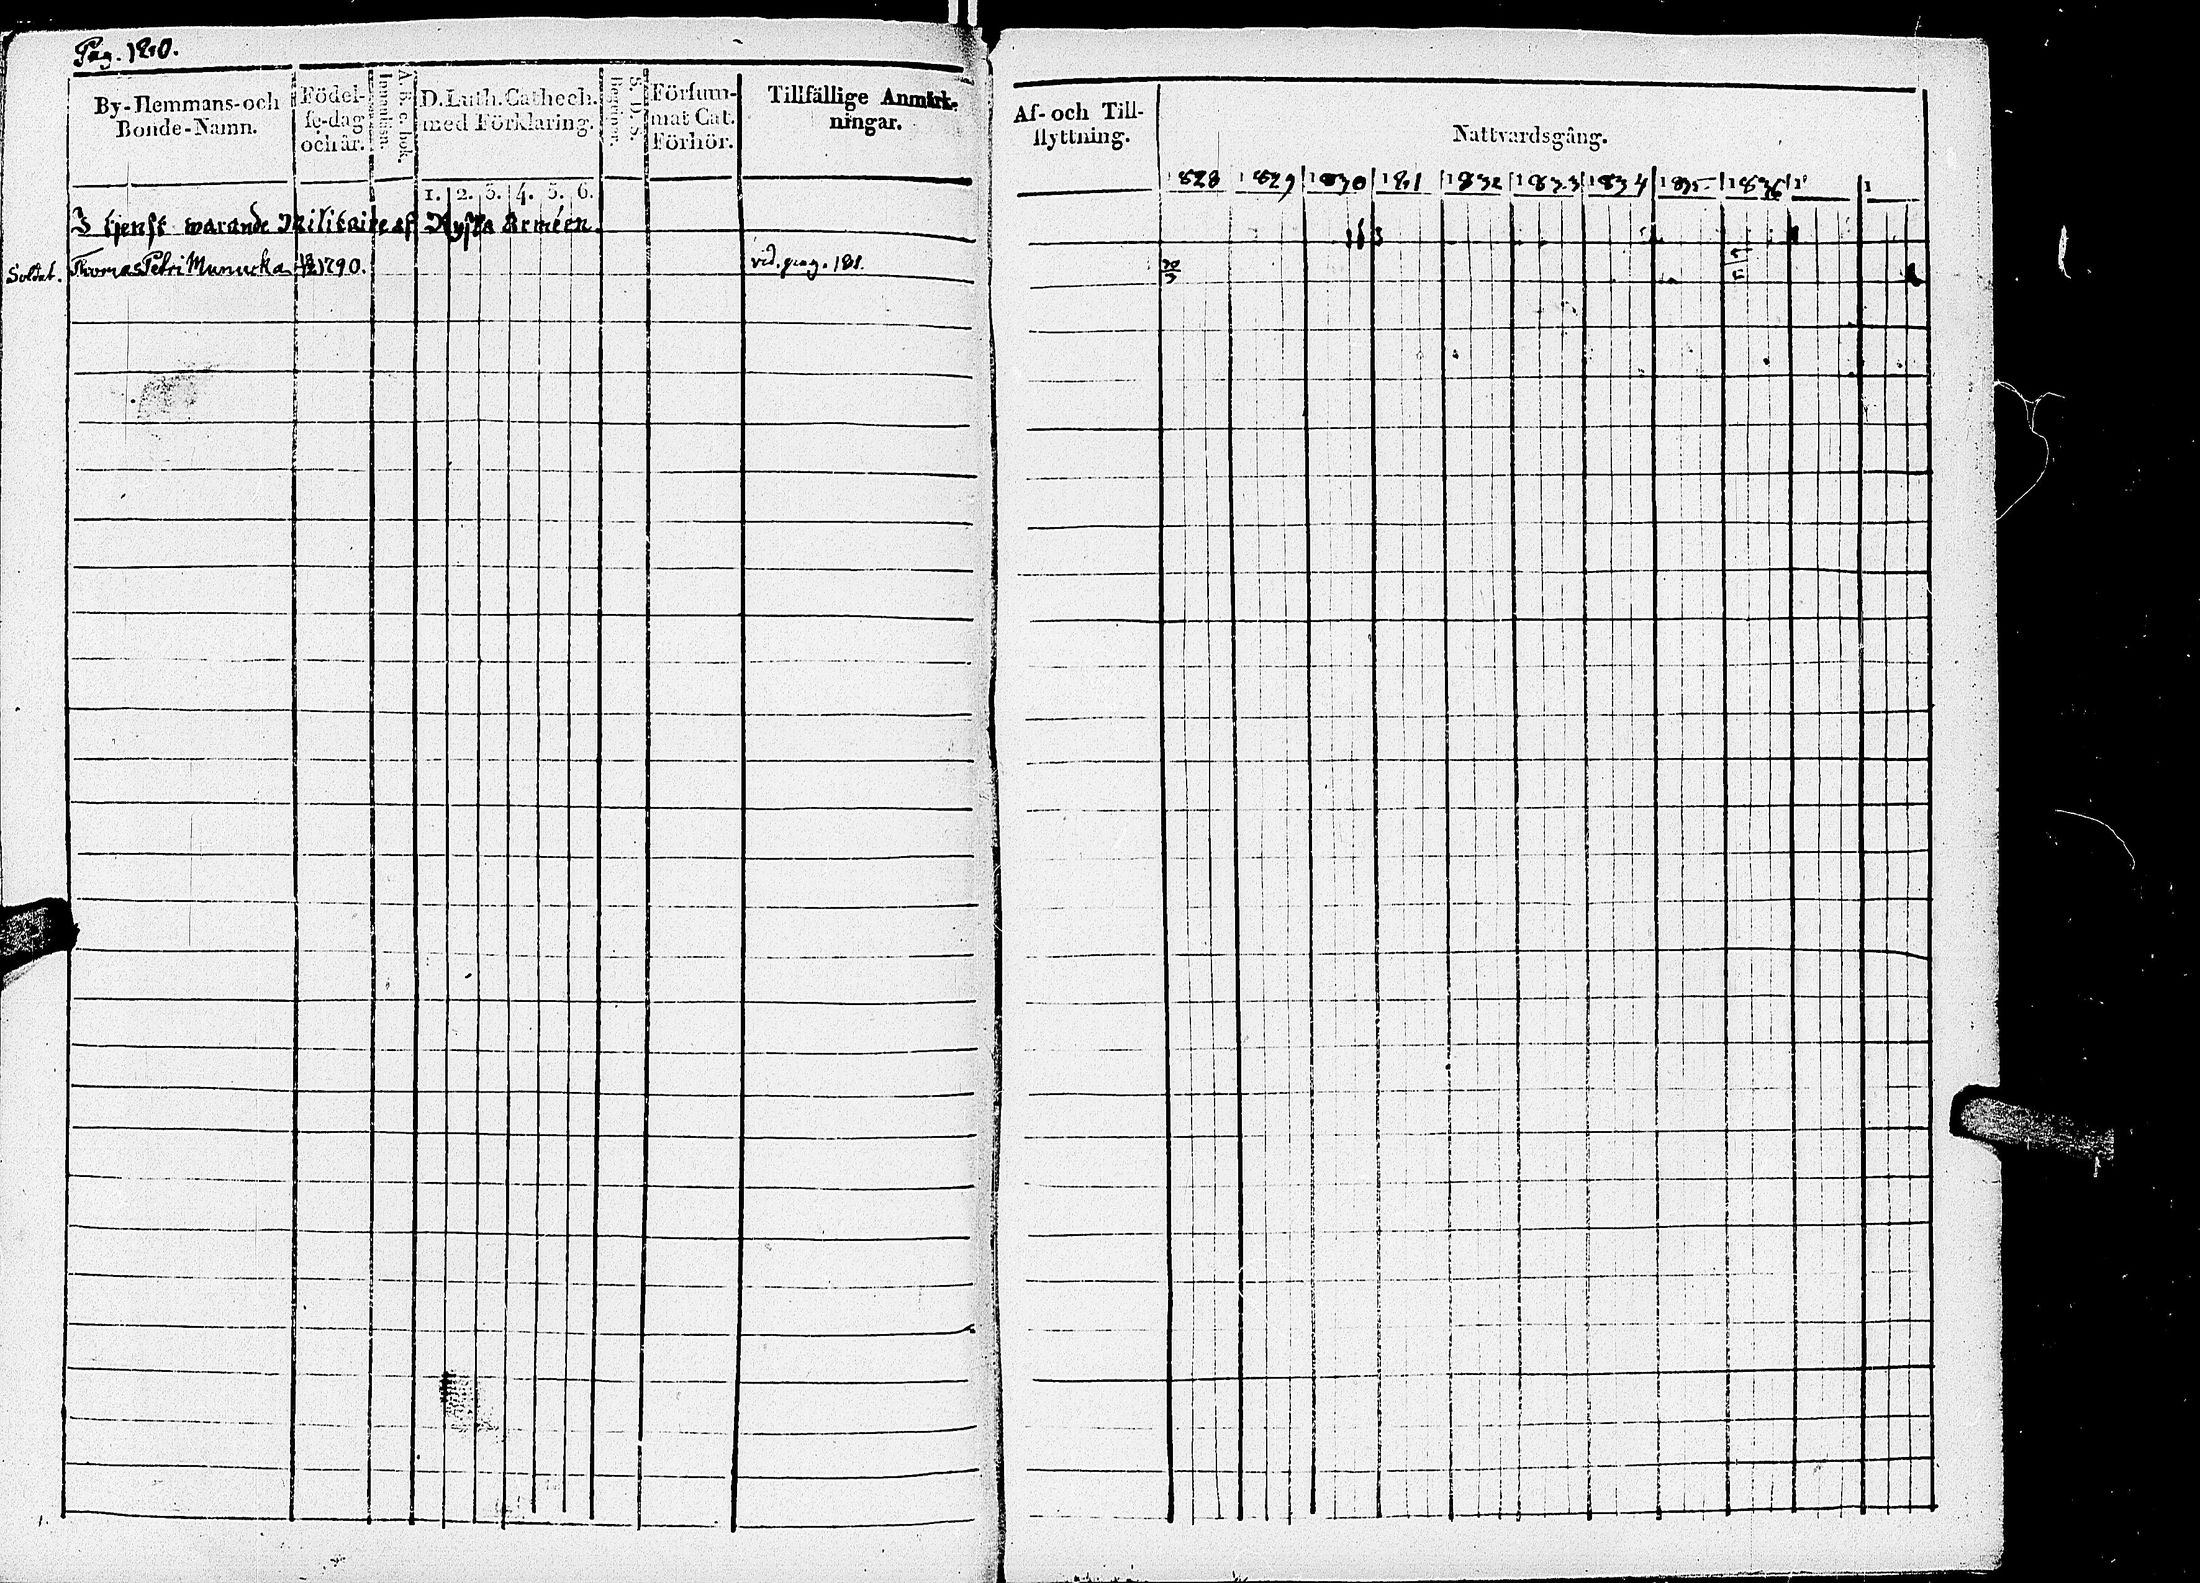 Pag. 180.
By-Hemmans-och Bonde-Namn.
Födel-se-dag och år.
A. B. C. bok. Innantläsn.
D. Luth. Cathech. med Förklaring.
1. 2. 3. 4. 5. 6.
S. D. S.
Försum-mat Cat. Förhör.
Tillfällige Anmärk-ningar.
Af- och Till-flyttning.
Nattvardsgång.
1828 1829 1830 1831 1832 1833 1834 1835 1836 1 1
I tjenst warande Militaire af Ryska Arméen.
Soldat. Thomas Petri Munucka 1790. vid. pag. 181.